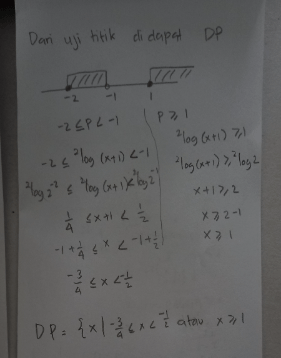 Dari uji titik didapat DP
-2 -1 1
-2 ≤ P < -1
-2 ≤ ²log (x+1) < -1
²log 2⁻² ≤ ²log (x+1) < ²log 2⁻¹
1/4 ≤ x+1 < 1/2
-1+1/4 ≤ x < -1+1/2
-3/4 ≤ x < -1/2
P ≥ 1
²log (x+1) ≥ 1
²log (x+1) ≥ ²log 2
x+1 ≥ 2
x ≥ 2-1
x ≥ 1
DP = {x | -3/4 ≤ x < -1/2 atau x ≥ 1